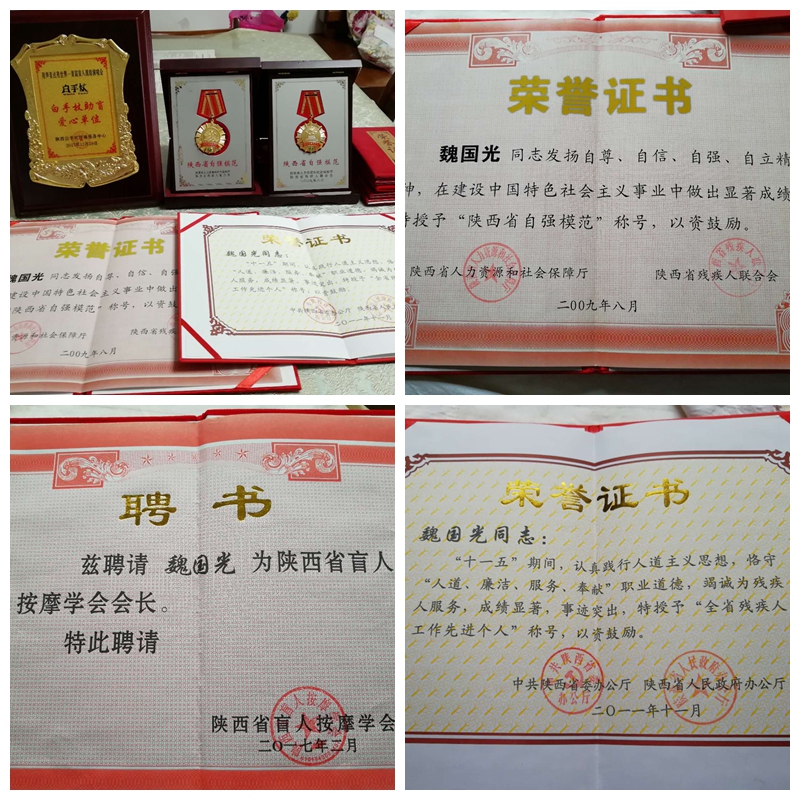 白手杖助盲
爱心单位
陕西省自强模范
陕西省自强模范
荣誉证书
魏国光 同志发扬自尊、自信、自强
建设中国特色社会主义事业中
陕西省自强模范”称号，以资鼓
资源和社会保障厅 陕西省残
二00九年八月
荣誉证书
魏国光同志：
中共陕西省委办公厅 陕西省人民
二0一一年十一月
荣誉证书
魏国光 同志发扬自尊、自信、自强、自立精
神，在建设中国特色社会主义事业中做出显著成绩
特授予“陕西省自强模范”称号，以资鼓励。
陕西省人力资源和社会保障厅 陕西省残疾人联合会
二00九年八月
聘书
兹聘请 魏国光 为陕西省盲人
按摩学会会长。
特此聘请
陕西省盲人按摩学会
二〇一七年二月
荣誉证书
魏国光同志：
“十一五”期间，认真践行人道主义思想，恪守
“人道、廉洁、服务、奉献”职业道德，竭诚为残疾
人服务，成绩显著，事迹突出，特授予“全省残疾人
工作先进个人”称号，以资鼓励。
中共陕西省委办公厅 陕西省人民政府办公厅
二〇一一年十一月